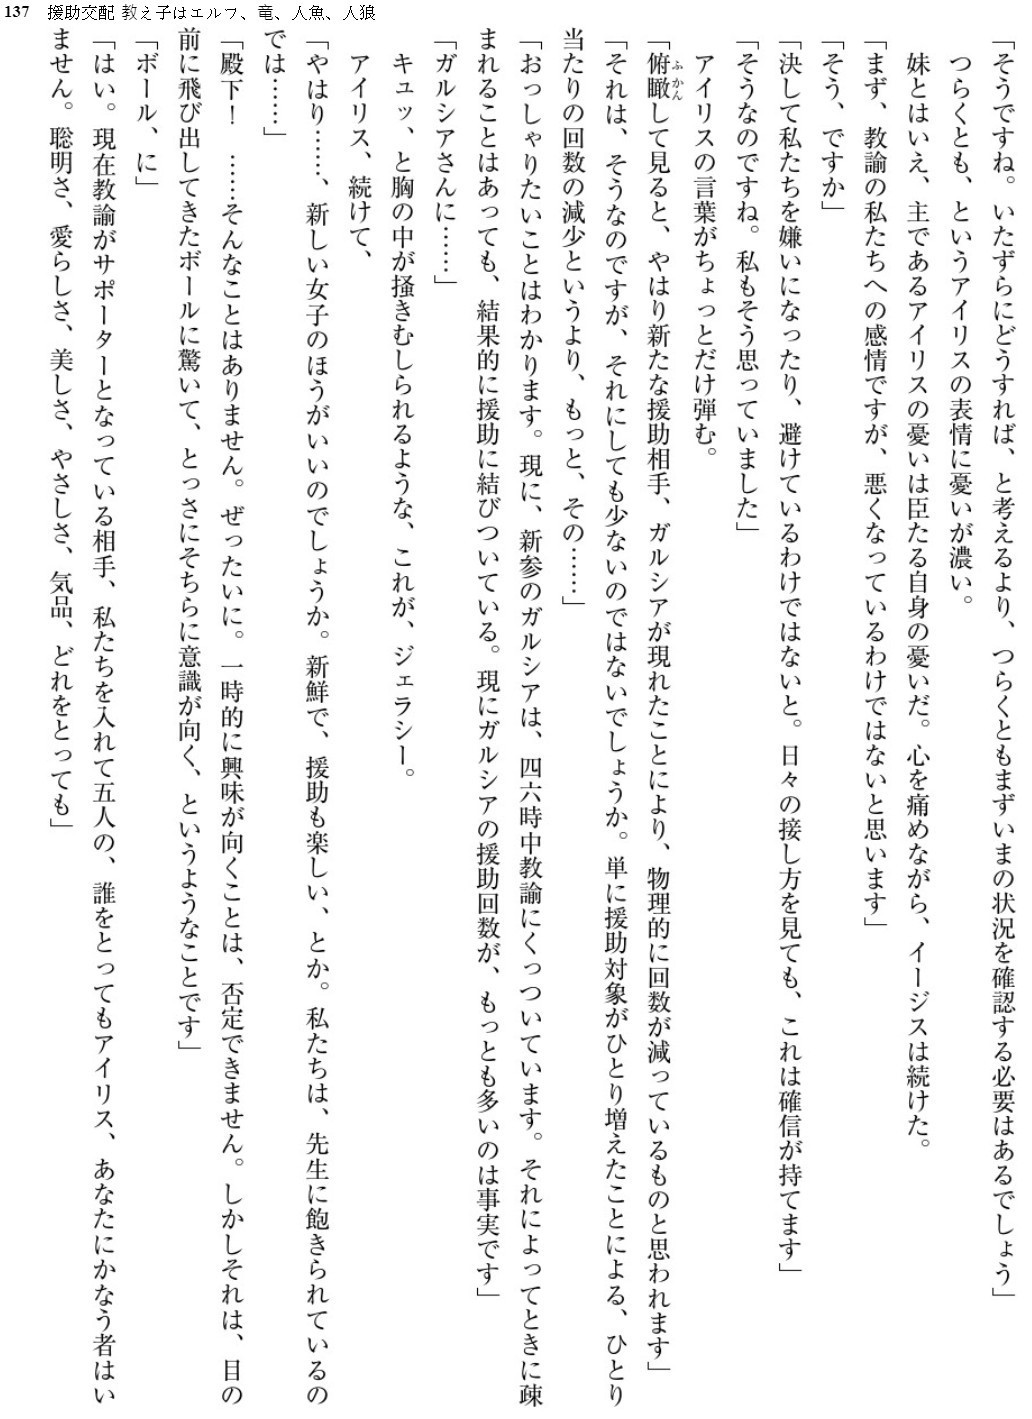 137　援助交配 教え子はエルフ、竜、人魚、人狼
「そうですね。いたずらにどうすれば、と考えるより、つらくともまずいまの状況を確認する必要はあるでしょう」
　つらくとも、というアイリスの表情に憂いが濃い。
　妹とはいえ、主であるアイリスの憂いは臣たる自身の憂いだ。心を痛めながら、イージスは続けた。
「まず、教諭の私たちへの感情ですが、悪くなっているわけではないと思います」
「そう、ですか」
「決して私たちを嫌いになったり、避けているわけではないと。日々の接し方を見ても、これは確信が持てます」
「そうなのですね。私もそう思っていました」
　アイリスの言葉がちょっとだけ弾む。
「俯瞰ふかんして見ると、やはり新たな援助相手、ガルシアが現れたことにより、物理的に回数が減っているものと思われます」
「それは、そうなのですが、それにしても少ないのではないでしょうか。単に援助対象がひとり増えたことによる、ひとり
当たりの回数の減少というより、もっと、その……」
「おっしゃりたいことはわかります。現に、新参のガルシアは、四六時中教諭にくっついています。それによってときに疎
まれることはあっても、結果的に援助に結びついている。現にガルシアの援助回数が、もっとも多いのは事実です」
「ガルシアさんに……」
　キュッ、と胸の中が掻きむしられるような、これが、ジェラシー。
　アイリス、続けて、
「やはり……、新しい女子のほうがいいのでしょうか。新鮮で、援助も楽しい、とか。私たちは、先生に飽きられているの
では……」
「殿下！　……そんなことはありません。ぜったいに。一時的に興味が向くことは、否定できません。しかしそれは、目の
前に飛び出してきたボールに驚いて、とっさにそちらに意識が向く、というようなことです」
「ボール、に」
「はい。現在教諭がサポーターとなっている相手、私たちを入れて五人の、誰をとってもアイリス、あなたにかなう者はい
ません。聡明さ、愛らしさ、美しさ、やさしさ、気品、どれをとっても」